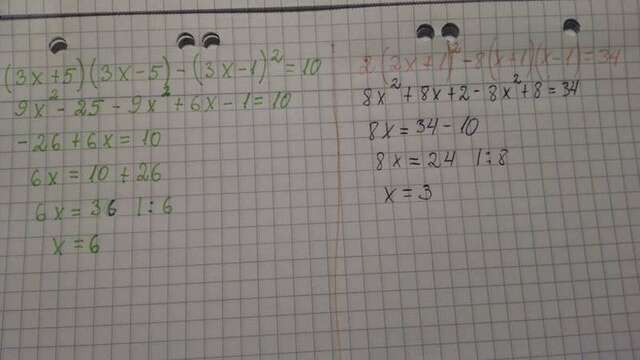 (3x+5)(3x-5)-(3x-1)²=10
9x²-25-9x²+6x-1=10
-26+6x=10
6x=10+26
6x=36 |:6
x=6
2(2x+1)²-8(x+1)(x-1)=34
8x²+8x+2-8x²+8=34
8x=34-10
8x=24 |:8
x=3